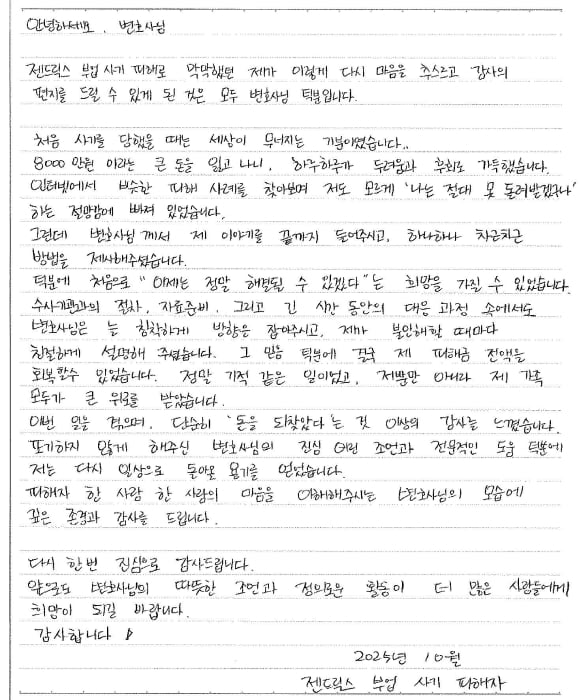 안녕하세요, 변호사님
젠드릭스 부업 사기 피해로 막막했던 제가 이렇게 다시 마음을 추스르고 감사의
편지를 드릴 수 있게 된 것은 모두 변호사님 덕분입니다.
처음 사기를 당했을 때는 세상이 무너지는 기분이었습니다..
8000만원 이라는 큰 돈을 잃고 나니, 하루하루가 두려움과 후회로 가득했습니다.
인터넷에서 비슷한 피해 사례를 찾아보며 저도 모르게 '나는 절대 못 돌려받겠구나'
하는 절망감에 빠져 있었습니다.
그런데 변호사님 께서 제 이야기를 끝까지 들어주시고, 하나하나 차근차근
방법을 제시해주셨습니다.
덕분에 처음으로 "이제는 정말 해결될 수 있겠다"는 희망을 가질 수 있었습니다.
수사기관과의 절차, 자료준비, 그리고 긴 시간 동안의 대응 과정 속에서도
변호사님은 늘 침착하게 방향을 잡아주시고, 제가 불안해할 때마다
친절하게 설명해 주셨습니다. 그 믿음 덕분에 결국 제 피해금 전액을
회복할수 있었습니다. 정말 기적 같은 일이었고, 제뿐만 아니라 제 가족
모두가 큰 위로를 받았습니다.
이번 일을 겪으며, 단순히 '돈을 되찾았다'는 것 이상의 감사를 느꼈습니다.
포기하지 않게 해주신 변호사님의 진심 어린 조언과 전문적인 도움 덕분에
저는 다시 일상으로 돌아올 용기를 얻었습니다.
피해자 한 사람 한 사람의 마음을 이해해주시는 변호사님의 모습에
깊은 존경과 감사를 드립니다.
다시 한번 진심으로 감사드립니다.
앞으로도 변호사님의 따뜻한 조언과 정의로운 활동이 더 많은 사람들에게
희망이 되길 바랍니다.
감사합니다
2025년 10월
젠드릭스 부업 사기 피해자